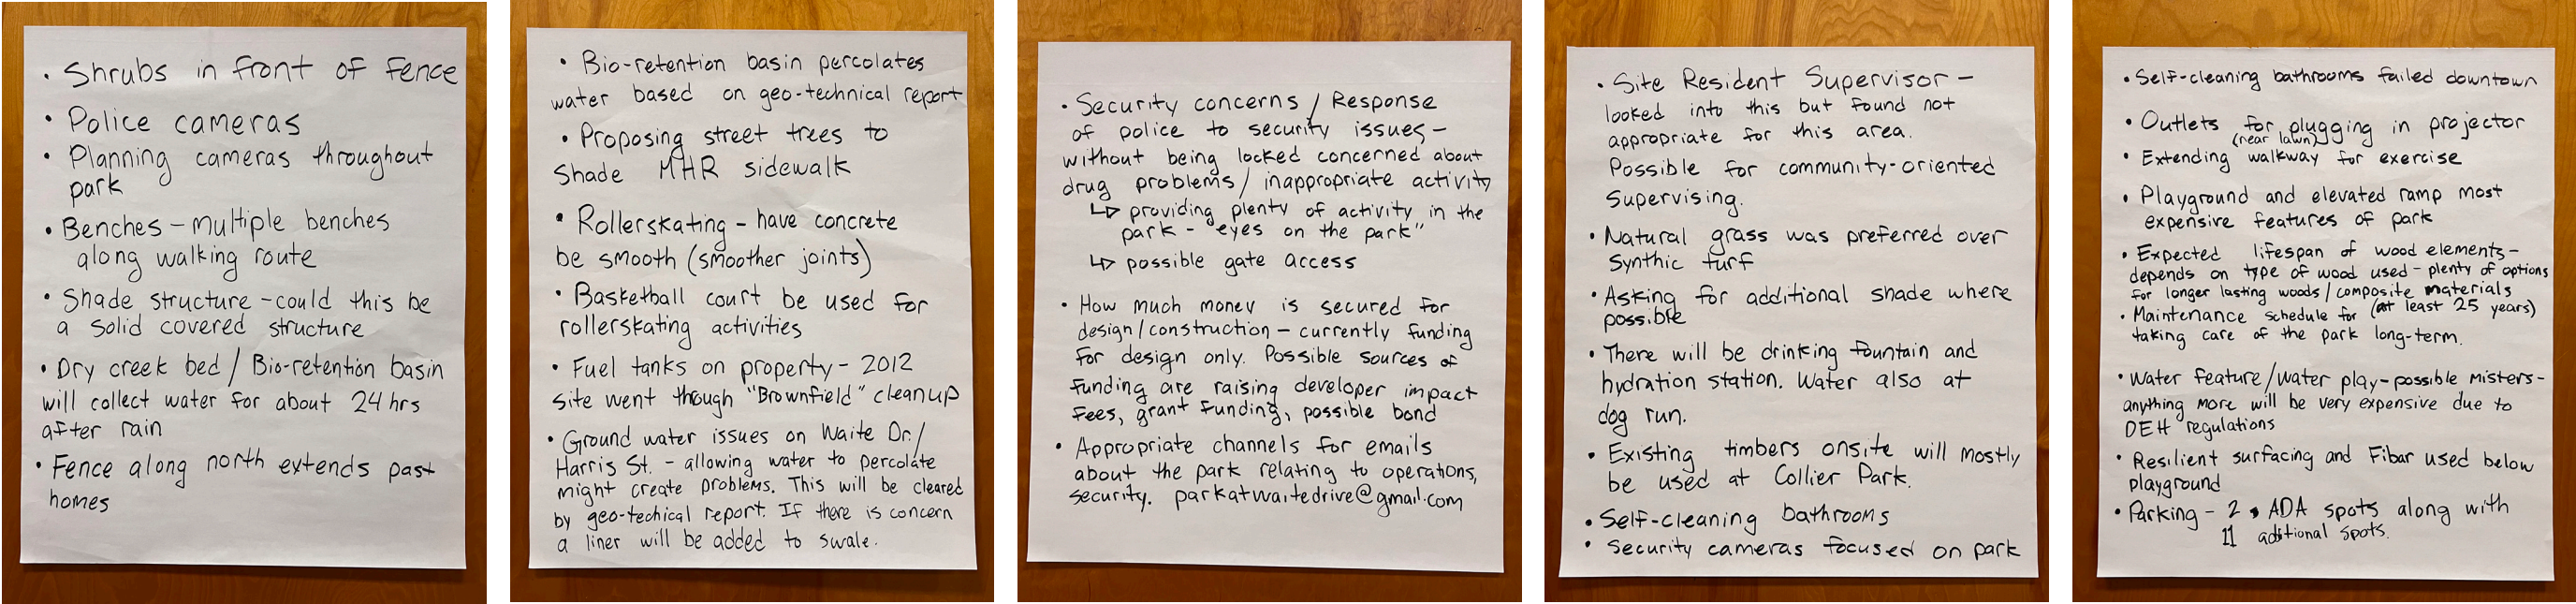 • Shrubs in front of fence
• Police cameras
• Planning cameras throughout
park
• Benches – multiple benches
along walking route
• Shade structure – could this be
a solid covered structure
• Dry creek bed / Bio-retention basin
will collect water for about 24 hrs
after rain
• Fence along north extends past
homes
• Bio-retention basin percolates
water based on geo-technical report
• Proposing street trees to
shade MHR sidewalk
• Rollerskating – have concrete
be smooth (smoother joints)
• Basketball court be used for
rollerskating activities
• Fuel tanks on property – 2012
site went through "Brownfield" cleanup
• Ground water issues on Waite Dr./
Harris St. – allowing water to percolate
might create problems. This will be cleared
by geo-techical report. If there is concern
a liner will be added to swale.
• Security concerns / Response
of police to security issues –
without being locked concerned about
drug problems / inappropriate activity
↳ providing plenty of activity in the
park – "eyes on the park"
↳ possible gate access
• How much money is secured for
design/construction – currently funding
for design only. Possible sources of
funding are raising developer impact
fees, grant funding, possible bond
• Appropriate channels for emails
about the park relating to operations,
security. parkatwaitedrive@gmail.com
• Site Resident Supervisor –
looked into this but found not
appropriate for this area.
Possible for community-oriented
supervising.
• Natural grass was preferred over
synthic turf
• Asking for additional shade where
possible
• There will be drinking fountain and
hydration station. Water also at
dog run.
• Existing timbers onsite will mostly
be used at Collier Park.
• Self-cleaning bathrooms
• Security cameras focused on park
• Self-cleaning bathrooms failed downtown
• Outlets for plugging in projector
(near lawn)
• Extending walkway for exercise
• Playground and elevated ramp most
expensive features of park
• Expected lifespan of wood elements –
depends on type of wood used – plenty of options
for longer lasting woods / composite materials
(at least 25 years)
• Maintenance schedule for
taking care of the park long-term.
• Water feature/water play – possible misters –
anything more will be very expensive due to
DEH regulations
• Resilient surfacing and Fibar used below
playground
• Parking – 2 ADA spots along with
11 aditional spots.